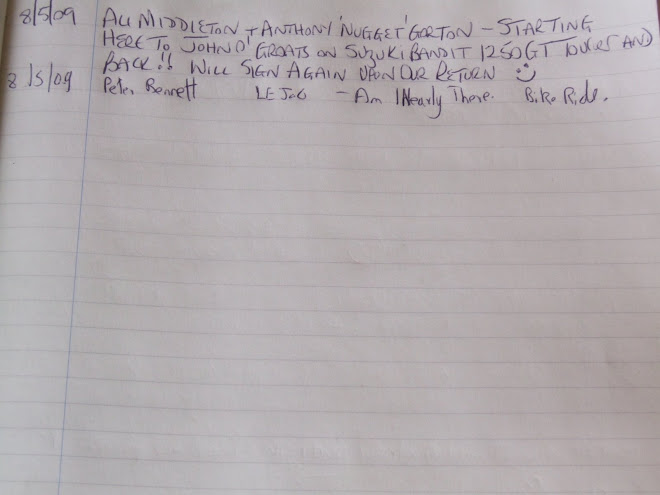 8/5/09 ALI MIDDLETON + ANTHONY 'NUGGET' GORTON - STARTING
HERE TO JOHN O'GROATS ON SUZUKI BANDIT 1250GT TOURER AND
BACK!! WILL SIGN AGAIN UPON OUR RETURN
8/5/09 Peter Bennett LEJOG - Am I Nearly There. Bike Ride.